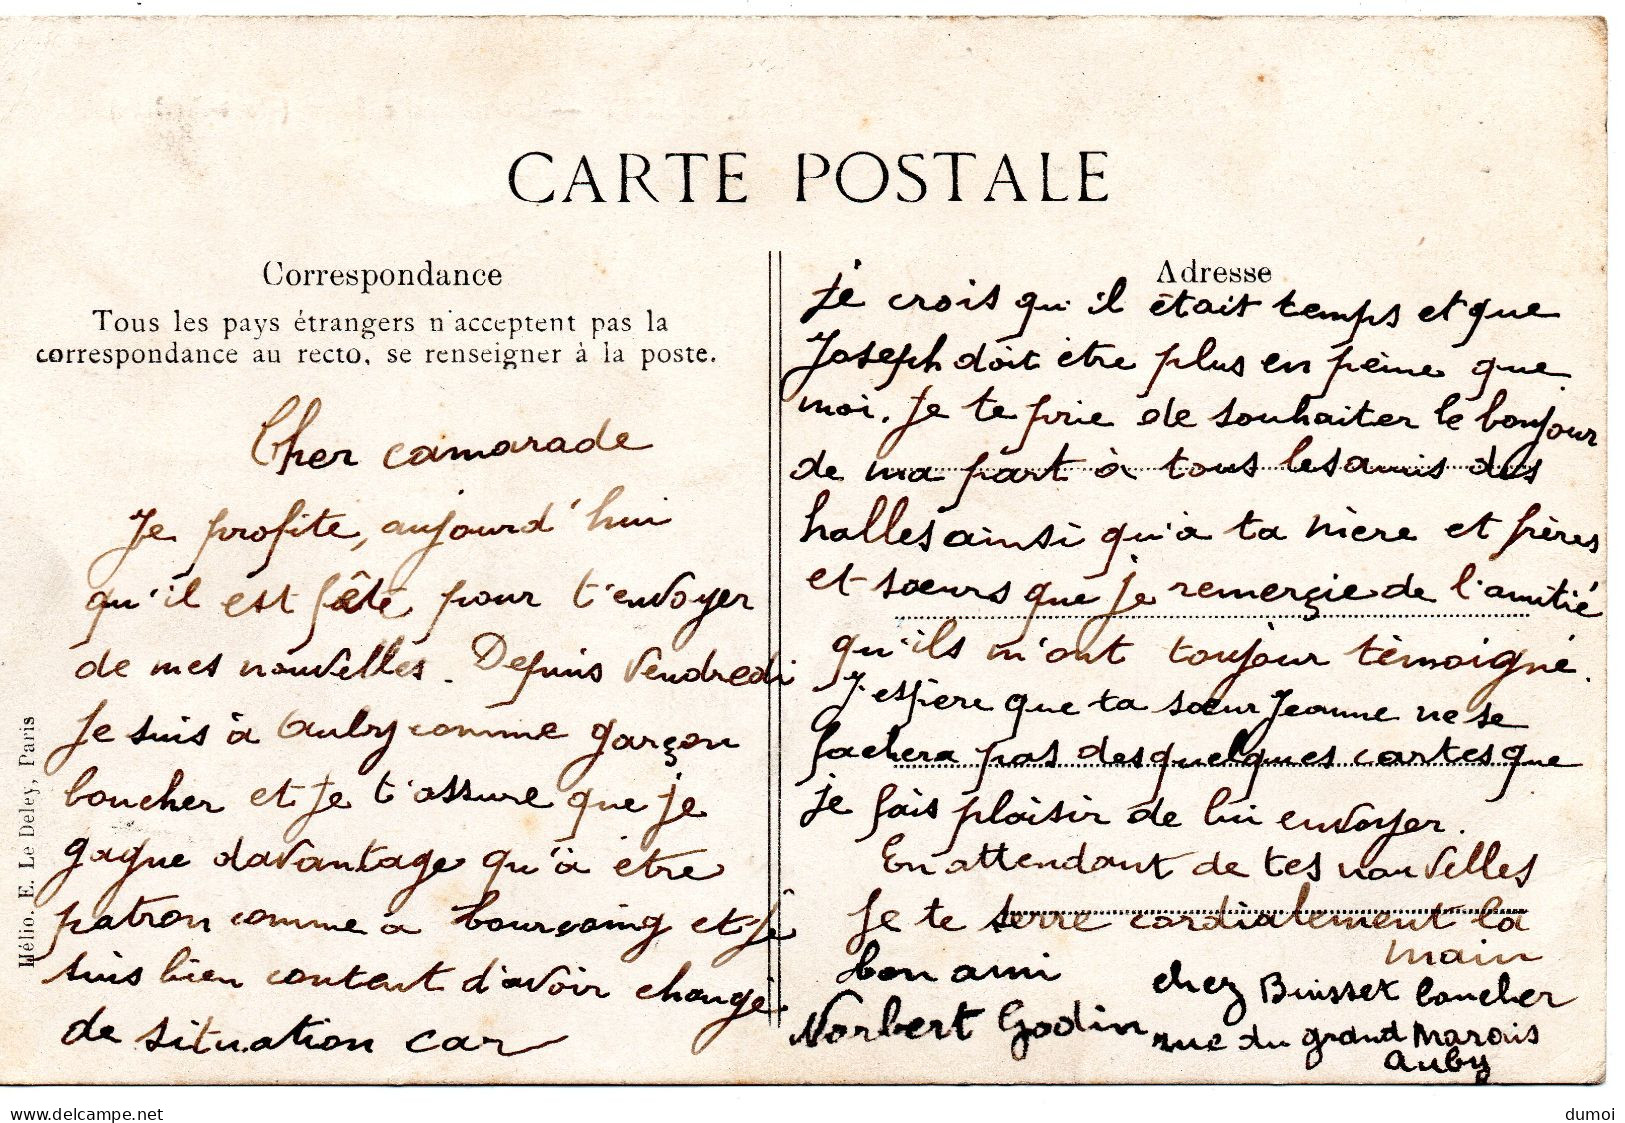 CARTE POSTALE
Correspondance
Tous les pays étrangers n'acceptent pas la
correspondance au recto, se renseigner à la poste.
Cher camarade
Je profite, aujourd'hui
qu'il est fête, pour t'envoyer
de mes nouvelles. Depuis Vendredi
Je suis à Auby comme garçon
boucher et je t'assure que je
gagne davantage qu'à être
patron comme à Tourcoing et je
suis bien content d'avoir changé
de situation car
Adresse
je crois qu'il était temps et que
Joseph doit être plus en peine que
moi. Je te prie de souhaiter le bonjour
de ma part à tous les amis des
halles ainsi qu'à ta mère et frères
et sœurs que je remerçie de l'amitié
qu'ils m'ont toujour témoigné.
J'espère que ta sœur Jeanne ne se
fachera pas des quelques cartes que
je fais plaisir de lui envoyer.
En attendant de tes nouvelles
Je te serre cordialement la
main
bon ami
Norbert Godin
chez Buisset boucher
rue du grand Marais
Auby
Hélio. E. Le Deley, Paris
delcampe.net
dumoi